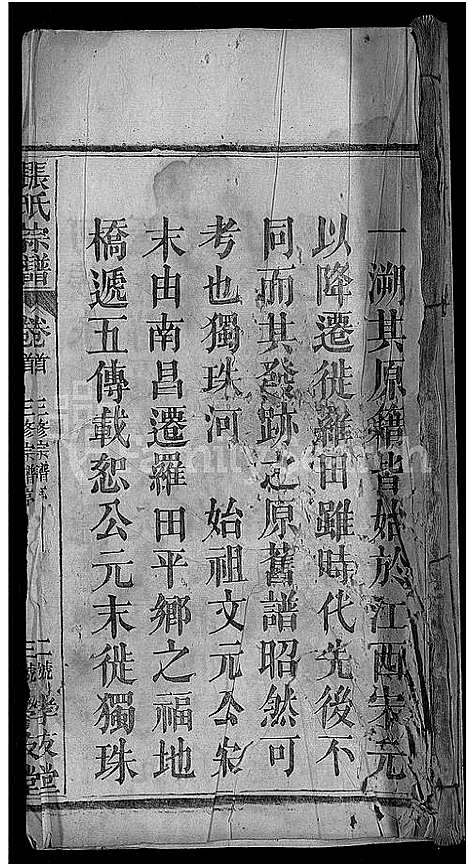 一溯其原籍皆始於江西宋元
以降遷徙羅田雖時代先後不
同而其發跡之原舊譜昭然可
考也獨珠河 始祖文元公宋
末由南昌遷羅田平鄉之福地
橋遞五傳載恕公元末徙獨珠
張氏宗譜 卷首 三修宗譜序 孝友堂